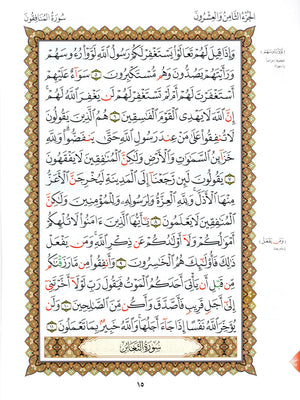 الجزء الثامن والعشرون
سورة المنافقون
وَإِذَا قِيلَ لَهُمْ تَعَالَوْا يَسْتَغْفِرْ لَكُمْ رَسُولُ اللَّهِ لَوَّوْا رُءُوسَهُمْ
وَرَأَيْتَهُمْ يَصُدُّونَ وَهُم مُّسْتَكْبِرُونَ ۝٥ سَوَآءٌ عَلَيْهِمْ
أَسْتَغْفَرْتَ لَهُمْ أَمْ لَمْ تَسْتَغْفِرْ لَهُمْ لَن يَغْفِرَ اللَّهُ لَهُمْ
إِنَّ اللَّهَ لَا يَهْدِى الْقَوْمَ الْفَٰسِقِينَ ۝٦ هُمُ الَّذِينَ يَقُولُونَ
لَا تُنفِقُوا عَلَىٰ مَنْ عِندَ رَسُولِ اللَّهِ حَتَّىٰ يَنفَضُّوا وَلِلَّهِ
خَزَآئِنُ السَّمَٰوَٰتِ وَالْأَرْضِ وَلَٰكِنَّ الْمُنَٰفِقِينَ لَا يَفْقَهُونَ
۝٧ يَقُولُونَ لَئِن رَّجَعْنَآ إِلَى الْمَدِينَةِ لَيُخْرِجَنَّ الْأَعَزُّ
مِنْهَا الْأَذَلَّ وَلِلَّهِ الْعِزَّةُ وَلِرَسُولِهِ وَلِلْمُؤْمِنِينَ وَلَٰكِنَّ
الْمُنَٰفِقِينَ لَا يَعْلَمُونَ ۝٨ يَٰٓأَيُّهَا الَّذِينَ ءَامَنُوا لَا تُلْهِكُمْ
أَمْوَٰلُكُمْ وَلَآ أَوْلَٰدُكُمْ عَن ذِكْرِ اللَّهِ وَمَن يَفْعَلْ
ذَٰلِكَ فَأُولَٰٓئِكَ هُمُ الْخَٰسِرُونَ ۝٩ وَأَنفِقُوا مِن مَّا رَزَقْنَٰكُم
مِّن قَبْلِ أَن يَأْتِىَ أَحَدَكُمُ الْمَوْتُ فَيَقُولَ رَبِّ لَوْلَآ أَخَّرْتَنِىٓ
إِلَىٰٓ أَجَلٍ قَرِيبٍ فَأَصَّدَّقَ وَأَكُن مِّنَ الصَّٰلِحِينَ ۝١٠ وَلَن
يُؤَخِّرَ اللَّهُ نَفْسًا إِذَا جَآءَ أَجَلُهَا وَاللَّهُ خَبِيرٌۢ بِمَا تَعْمَلُونَ ۝١١
سورة التغابن
١٥